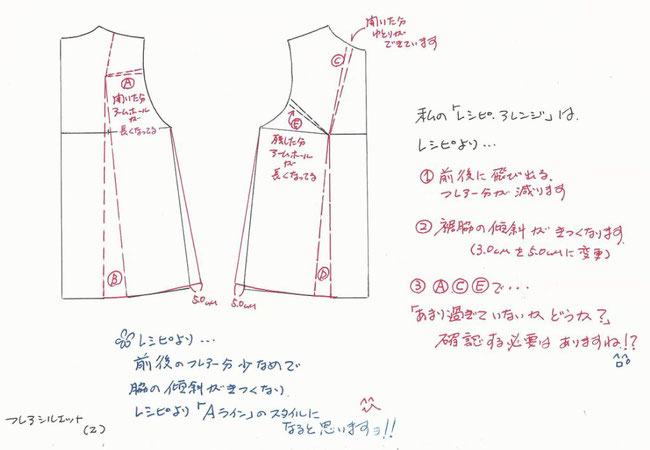 開いた分
ゆとりが
できています
Ⓒ
Ⓐ
開いた分
アームホール
が
長くなってる
Ⓔ
残した分
アームホール
が
長くなってる
Ⓑ
Ⓓ
5.0cm
5.0cm
私の「レシピ・アレンジ」は、
レシピより…
① 前後に飛び出る、
フレアー分が減ります
② 裾脇の傾斜がきつくなります
(3.0cmを5.0cmに変更)
③ ⒶⒸⒺで・・・
「あまり過ぎていないか どうか?」
確認する必要は ありますね!?
レシピより…
前後のフレアー分少なめで
脇の傾斜がきつくなり
レシピより「Aライン」のスタイルに
なると思いますョ!!
フレアシルエット
(2)